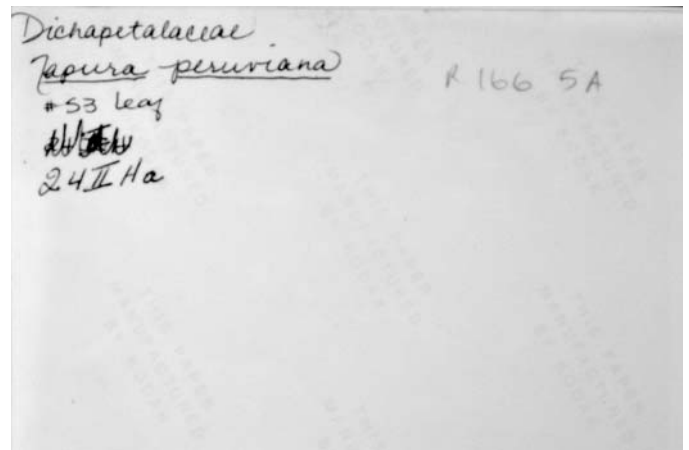 Dichapetalaceae
Tapura peruviana
R 166 5A
#53 leaf
24 II Ha
THIS PAPER
MANUFACTURED
BY KODAK